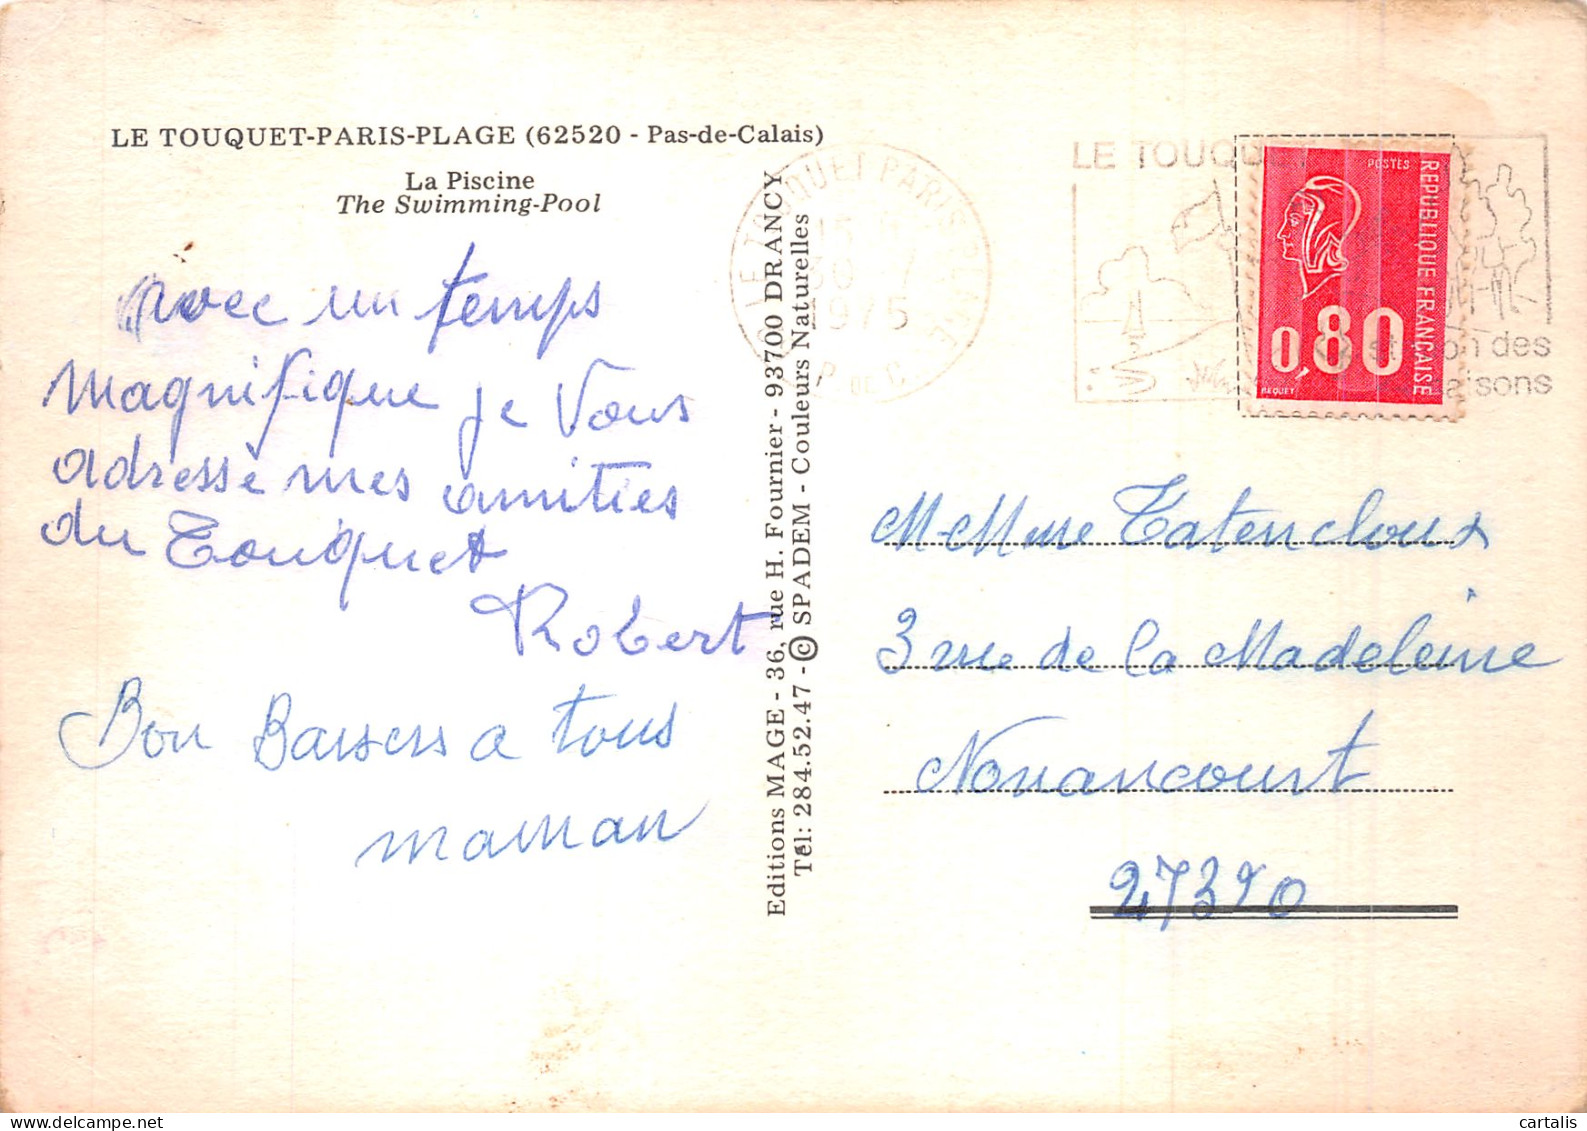 LE TOUQUET-PARIS-PLAGE (62520 - Pas-de-Calais)
La Piscine
The Swimming-Pool
Avec un temps
magnifique je Vous
adresse mes amitiés
du Touquet
Robert
Bon Baisers a tous
maman
Editions MAGE - 36, rue H. Fournier - 93700 DRANCY
Tél: 284.52.47 - © SPADEM - Couleurs Naturelles
LE TOUQUET PARIS PLAGE
1975
P. DE C.
LE TOUQU
des
aisons
POSTES
REPUBLIQUE FRANÇAISE
0,80
BEQUET
M. Mme Tatencloux
3 rue de la Madeleine
Nonancourt
27320
cartalis